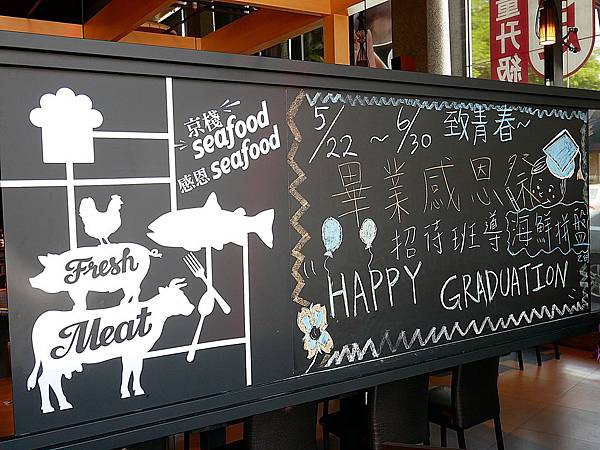 京棧
seafood
感恩 seafood
Fresh
Meat
5/22～6/30 致青春~
畢業感恩祭
招待班導海鮮拼盤
HAPPY GRADUATION
量升級